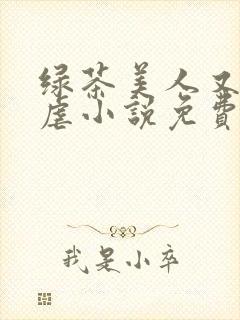 绿茶美人又
虐小説免費
我是小卒